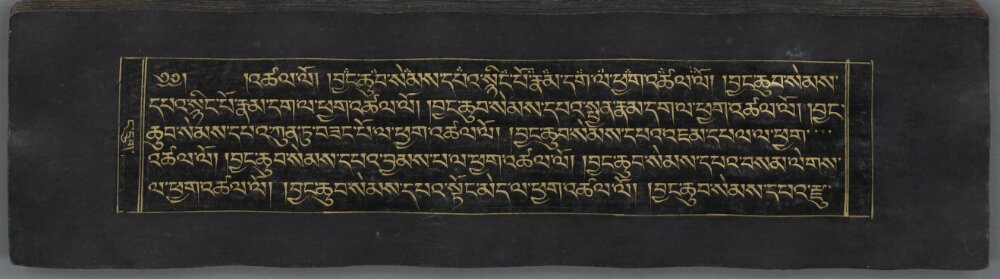 ༄༅། །འཚལ་ལོ། །བྱང་ཆུབ་སེམས་དཔའ་སྙིང་པོ་རྣམ་དག་ལ་ཕྱག་འཚལ་ལོ། །བྱང་ཆུབ་སེམས་
དཔའ་སྙིང་པོ་རྣམ་དག་ལ་ཕྱག་འཚལ་ལོ། །བྱང་ཆུབ་སེམས་དཔའ་སྤྱན་རྣམ་དག་ལ་ཕྱག་འཚལ་ལོ། །བྱང་
ཆུབ་སེམས་དཔའ་ཀུན་ཏུ་བཟང་པོ་ལ་ཕྱག་འཚལ་ལོ། །བྱང་ཆུབ་སེམས་དཔའ་འཇམ་དཔལ་ལ་ཕྱག་
འཚལ་ལོ། །བྱང་ཆུབ་སེམས་དཔའ་བྱམས་པ་ལ་ཕྱག་འཚལ་ལོ། །བྱང་ཆུབ་སེམས་དཔའ་བསམ་ལེགས་
ལ་ཕྱག་འཚལ་ལོ། །བྱང་ཆུབ་སེམས་དཔའ་སྟོང་མེད་ལ་ཕྱག་འཚལ་ལོ། །བྱང་ཆུབ་སེམས་དཔའ་རྫུ་